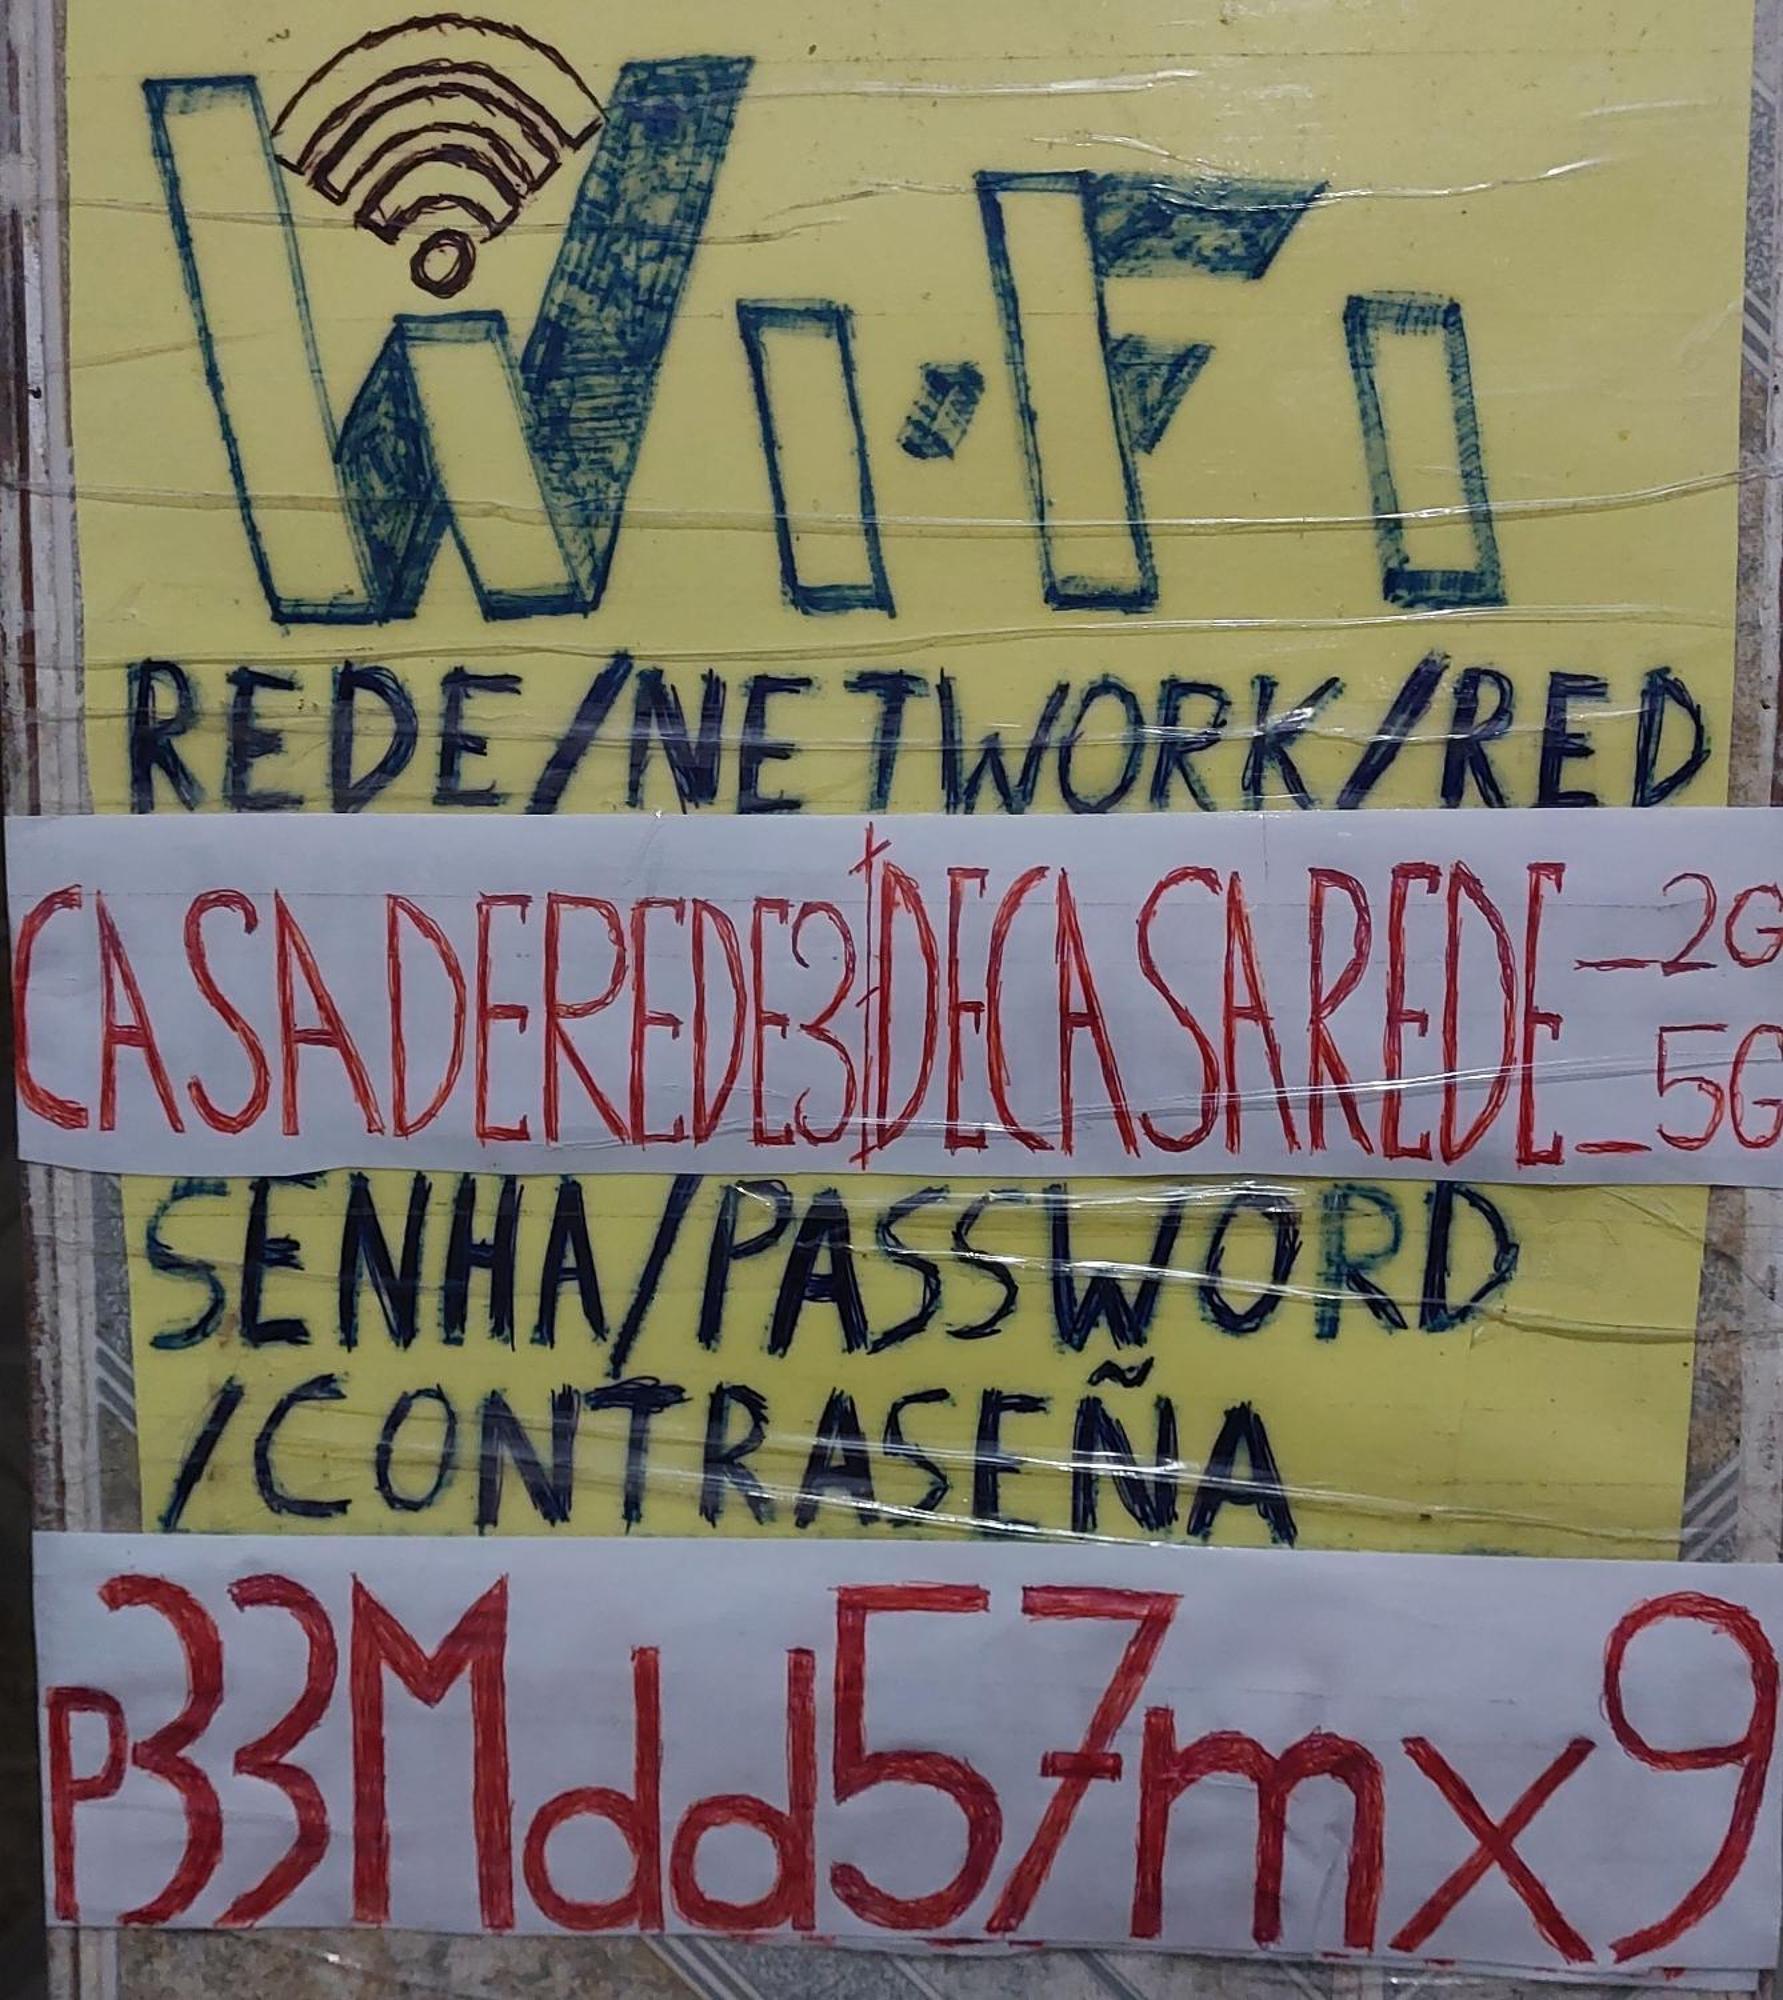 Wi-Fi
REDE/NETWORK/RED
CASADEREDE3|DECASAREDE_2G
_5G
SENHA/PASSWORD
/CONTRASEÑA
p33Mdd57mx9